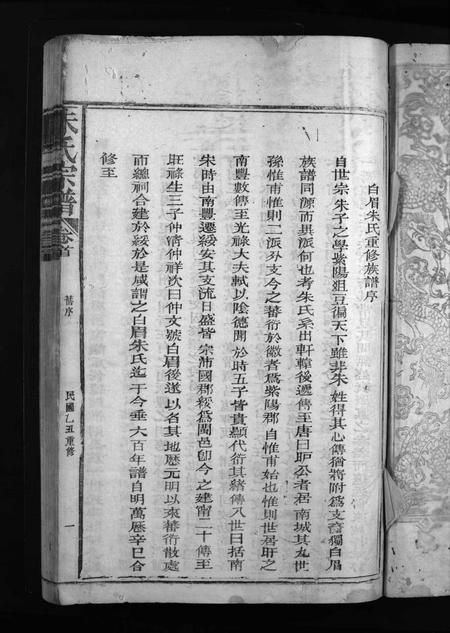 白眉朱氏重修族譜序
自世宗朱子之學紫陽俎豆徧天下雖非朱姓得其心傳猶將附為支裔獨白眉
族譜同源而異派何也考朱氏系出軒轅後遞傳至唐曰昈公者居南城其九世
孫惟甫惟則二派分支今之蕃衍於徽者為紫陽郡自惟甫始也惟則世居旴之
南豐數傳至光祿大夫軾以陰德聞於時五子皆貴顯代衍其緒傳八世曰括南
宋時由南豐遷綏安其支流日盛皆宗沛國郡綏為閩邑卽今之建甯二十傳至
旺祿生三子仲清仲祥次曰仲文號白眉後遂以名其地歷元明以來蕃衍散處
而總祠合建於綏於是咸謂之白眉朱氏迄于今垂六百年譜自明萬歷辛巳合
修至
朱氏宗譜
卷首
舊序
民國乙丑重修
一